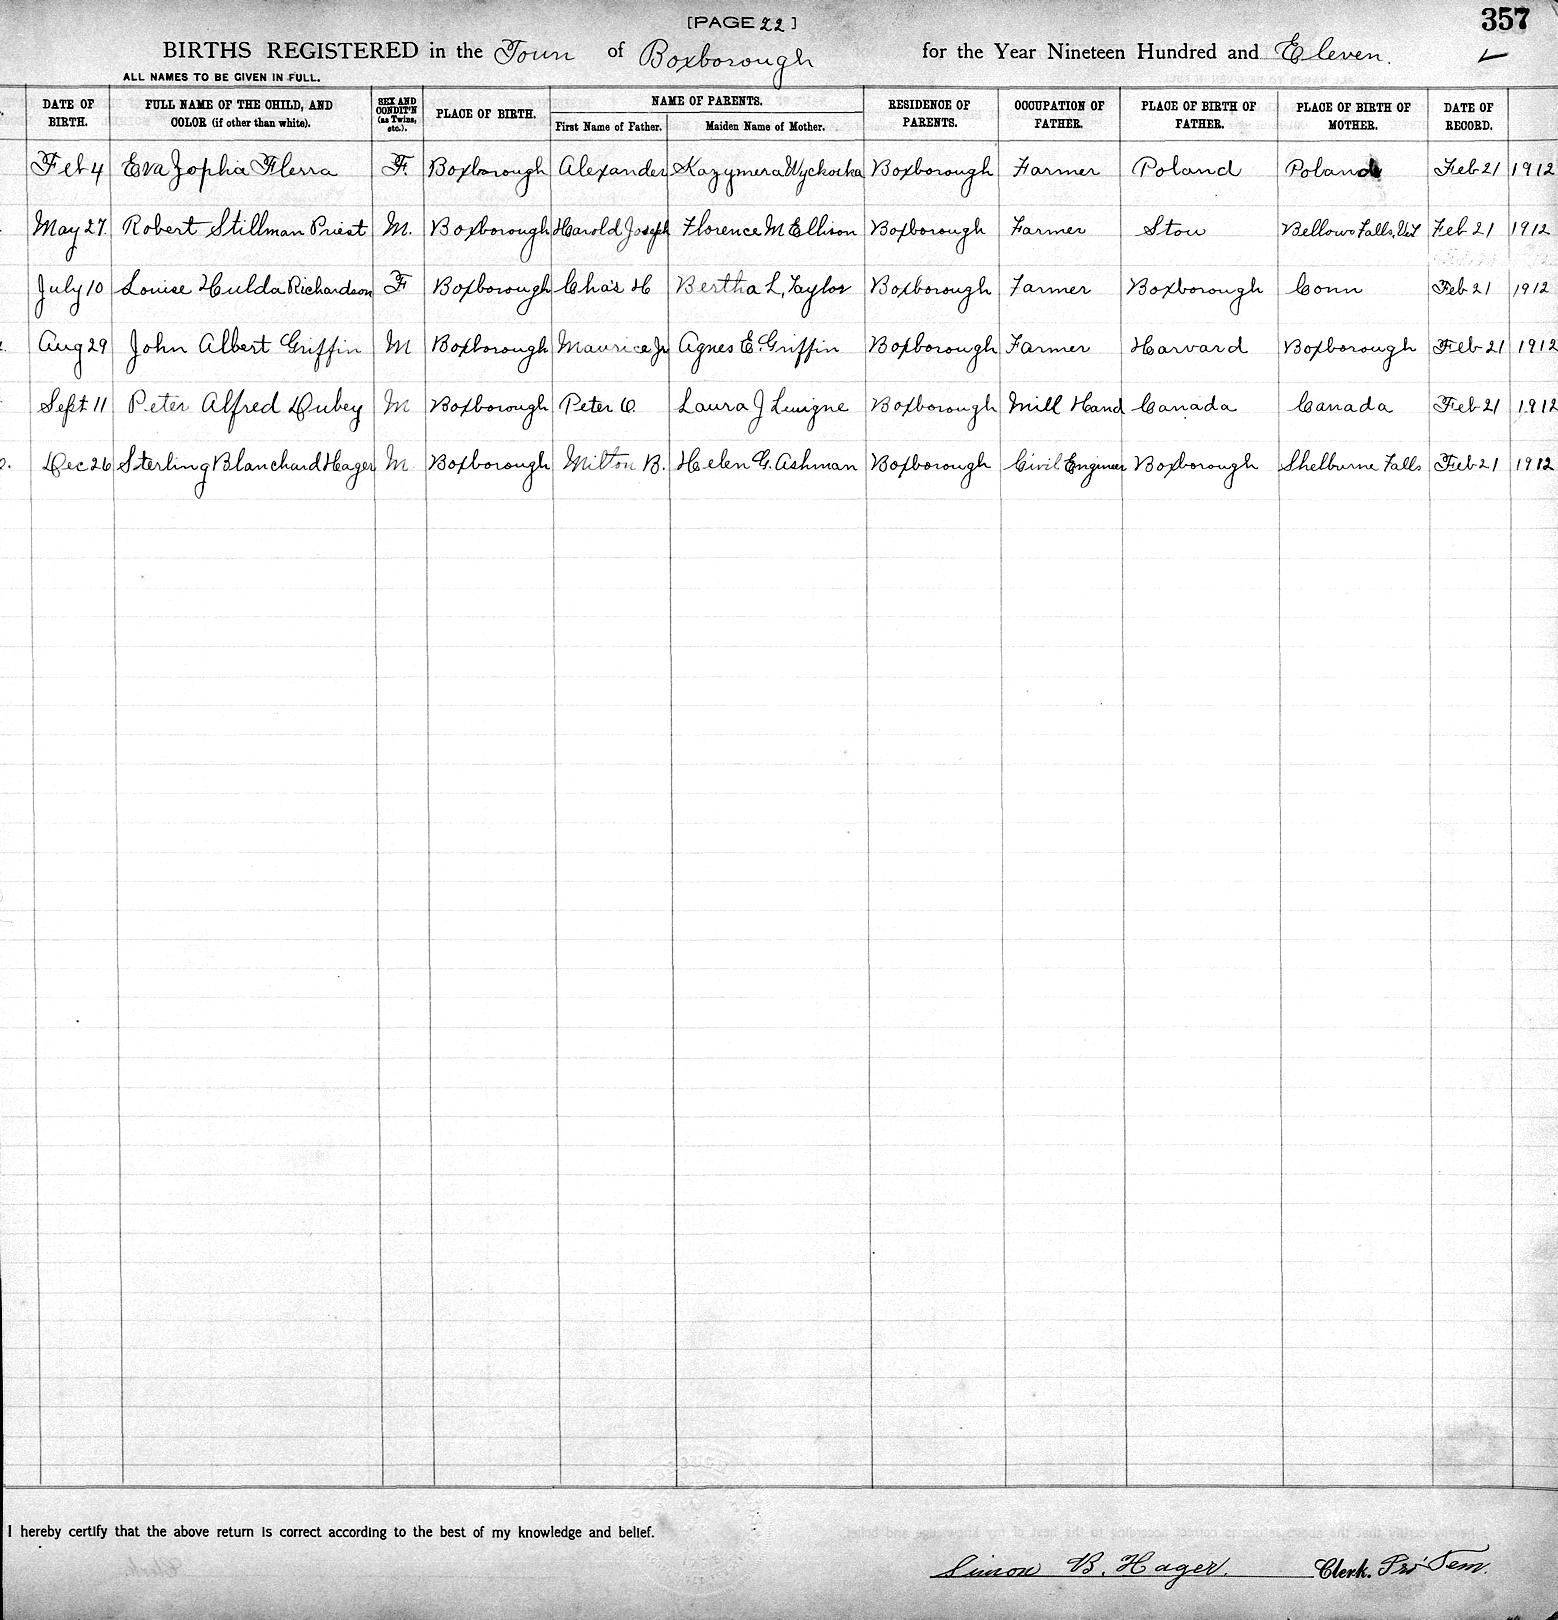 [PAGE 22]
357
BIRTHS REGISTERED in the Town of Boxborough for the Year Nineteen Hundred and Eleven.
ALL NAMES TO BE GIVEN IN FULL.
DATE OF BIRTH. FULL NAME OF THE CHILD, AND COLOR (if other than white). SEX AND CONDIT'N (as Twins, etc.). PLACE OF BIRTH. NAME OF PARENTS. First Name of Father. Maiden Name of Mother. RESIDENCE OF PARENTS. OCCUPATION OF FATHER. PLACE OF BIRTH OF FATHER. PLACE OF BIRTH OF MOTHER. DATE OF RECORD.
Feb 4 Eva Zopha Flerra F. Boxborough Alexander Kazymera Boxborough Farmer Poland Poland Feb 21 1912
May 27. Robert Stillman Priest M. Boxborough Harold Joseph Florence M Ellison Boxborough Farmer Stow Bellows Falls, Vt Feb 21 1912
July 10 Louise Hulda Richardson F Boxborough Cha's H Bertha L, Taylor Boxborough Farmer Boxborough Conn Feb 21 1912
Aug 29 John Albert Griffin M Boxborough Maurice Jr Agnes E. Griffin Boxborough Farmer Harvard Boxborough Feb 21 1912
Sept 11 Peter Alfred Dubey M Boxborough Peter O. Laura J Levigne Boxborough Mill Hand Canada Canada Feb 21 1912
Dec 26 Sterling Blanchard Hager M Boxborough Milton B. Helen G. Ashman Boxborough Civil Engineer Boxborough Shelburne Falls Feb 21 1912
I hereby certify that the above return is correct according to the best of my knowledge and belief.
Simon B. Hager. Clerk. Pro Tem.